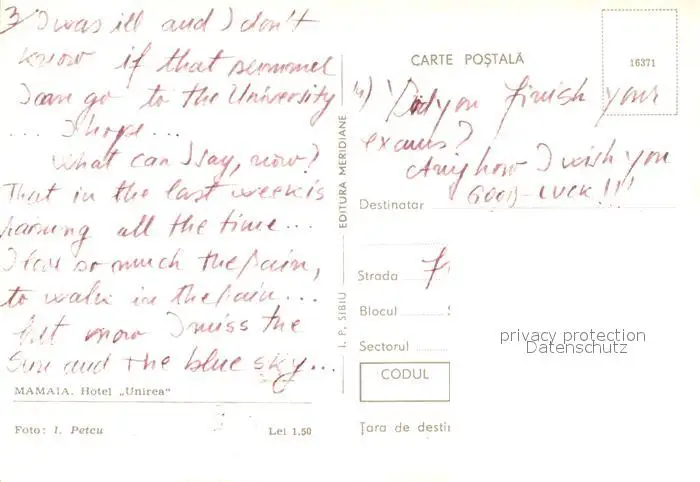 3 I was ill and I don't
know if that summer
I can go to the University
... I hope...
what can I say, now?
That in the last week is
raining all the time...
I love so much the rain,
to walk in the rain...
but now I miss the
Sun and the blue sky...
MAMAIA. Hotel „Unirea"
Foto: I. Petcu Lei 1.50
I. P. SIBIU — EDITURA MERIDIANE
CARTE POȘTALĂ
16371
4) Did you finish your
exams?
Anyhow I wish you
GOOD-LUCK!!!
Destinatar
Strada
Blocul
Sectorul
CODUL
Țara de desti
privacy protection
Datenschutz